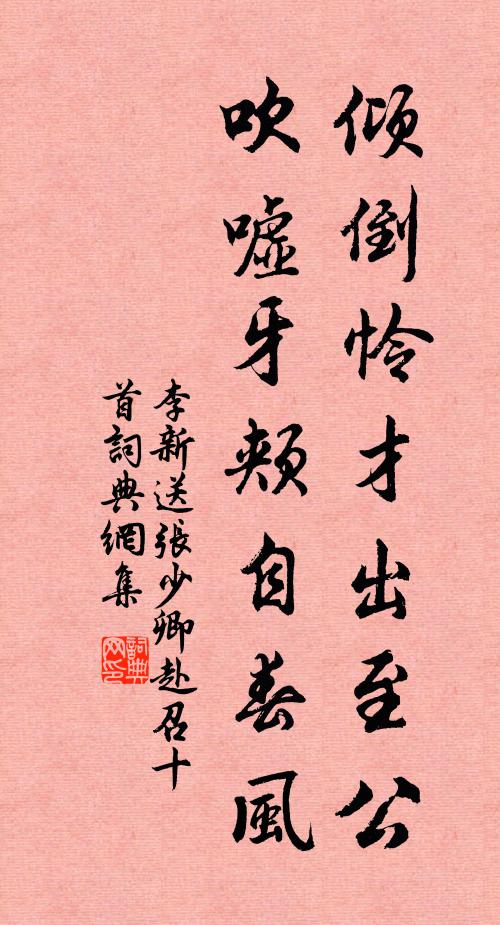 傾倒怜才出至公
吹噓牙頰自春風
李新送張少卿赴召十
首詞典網集
詞典
网印